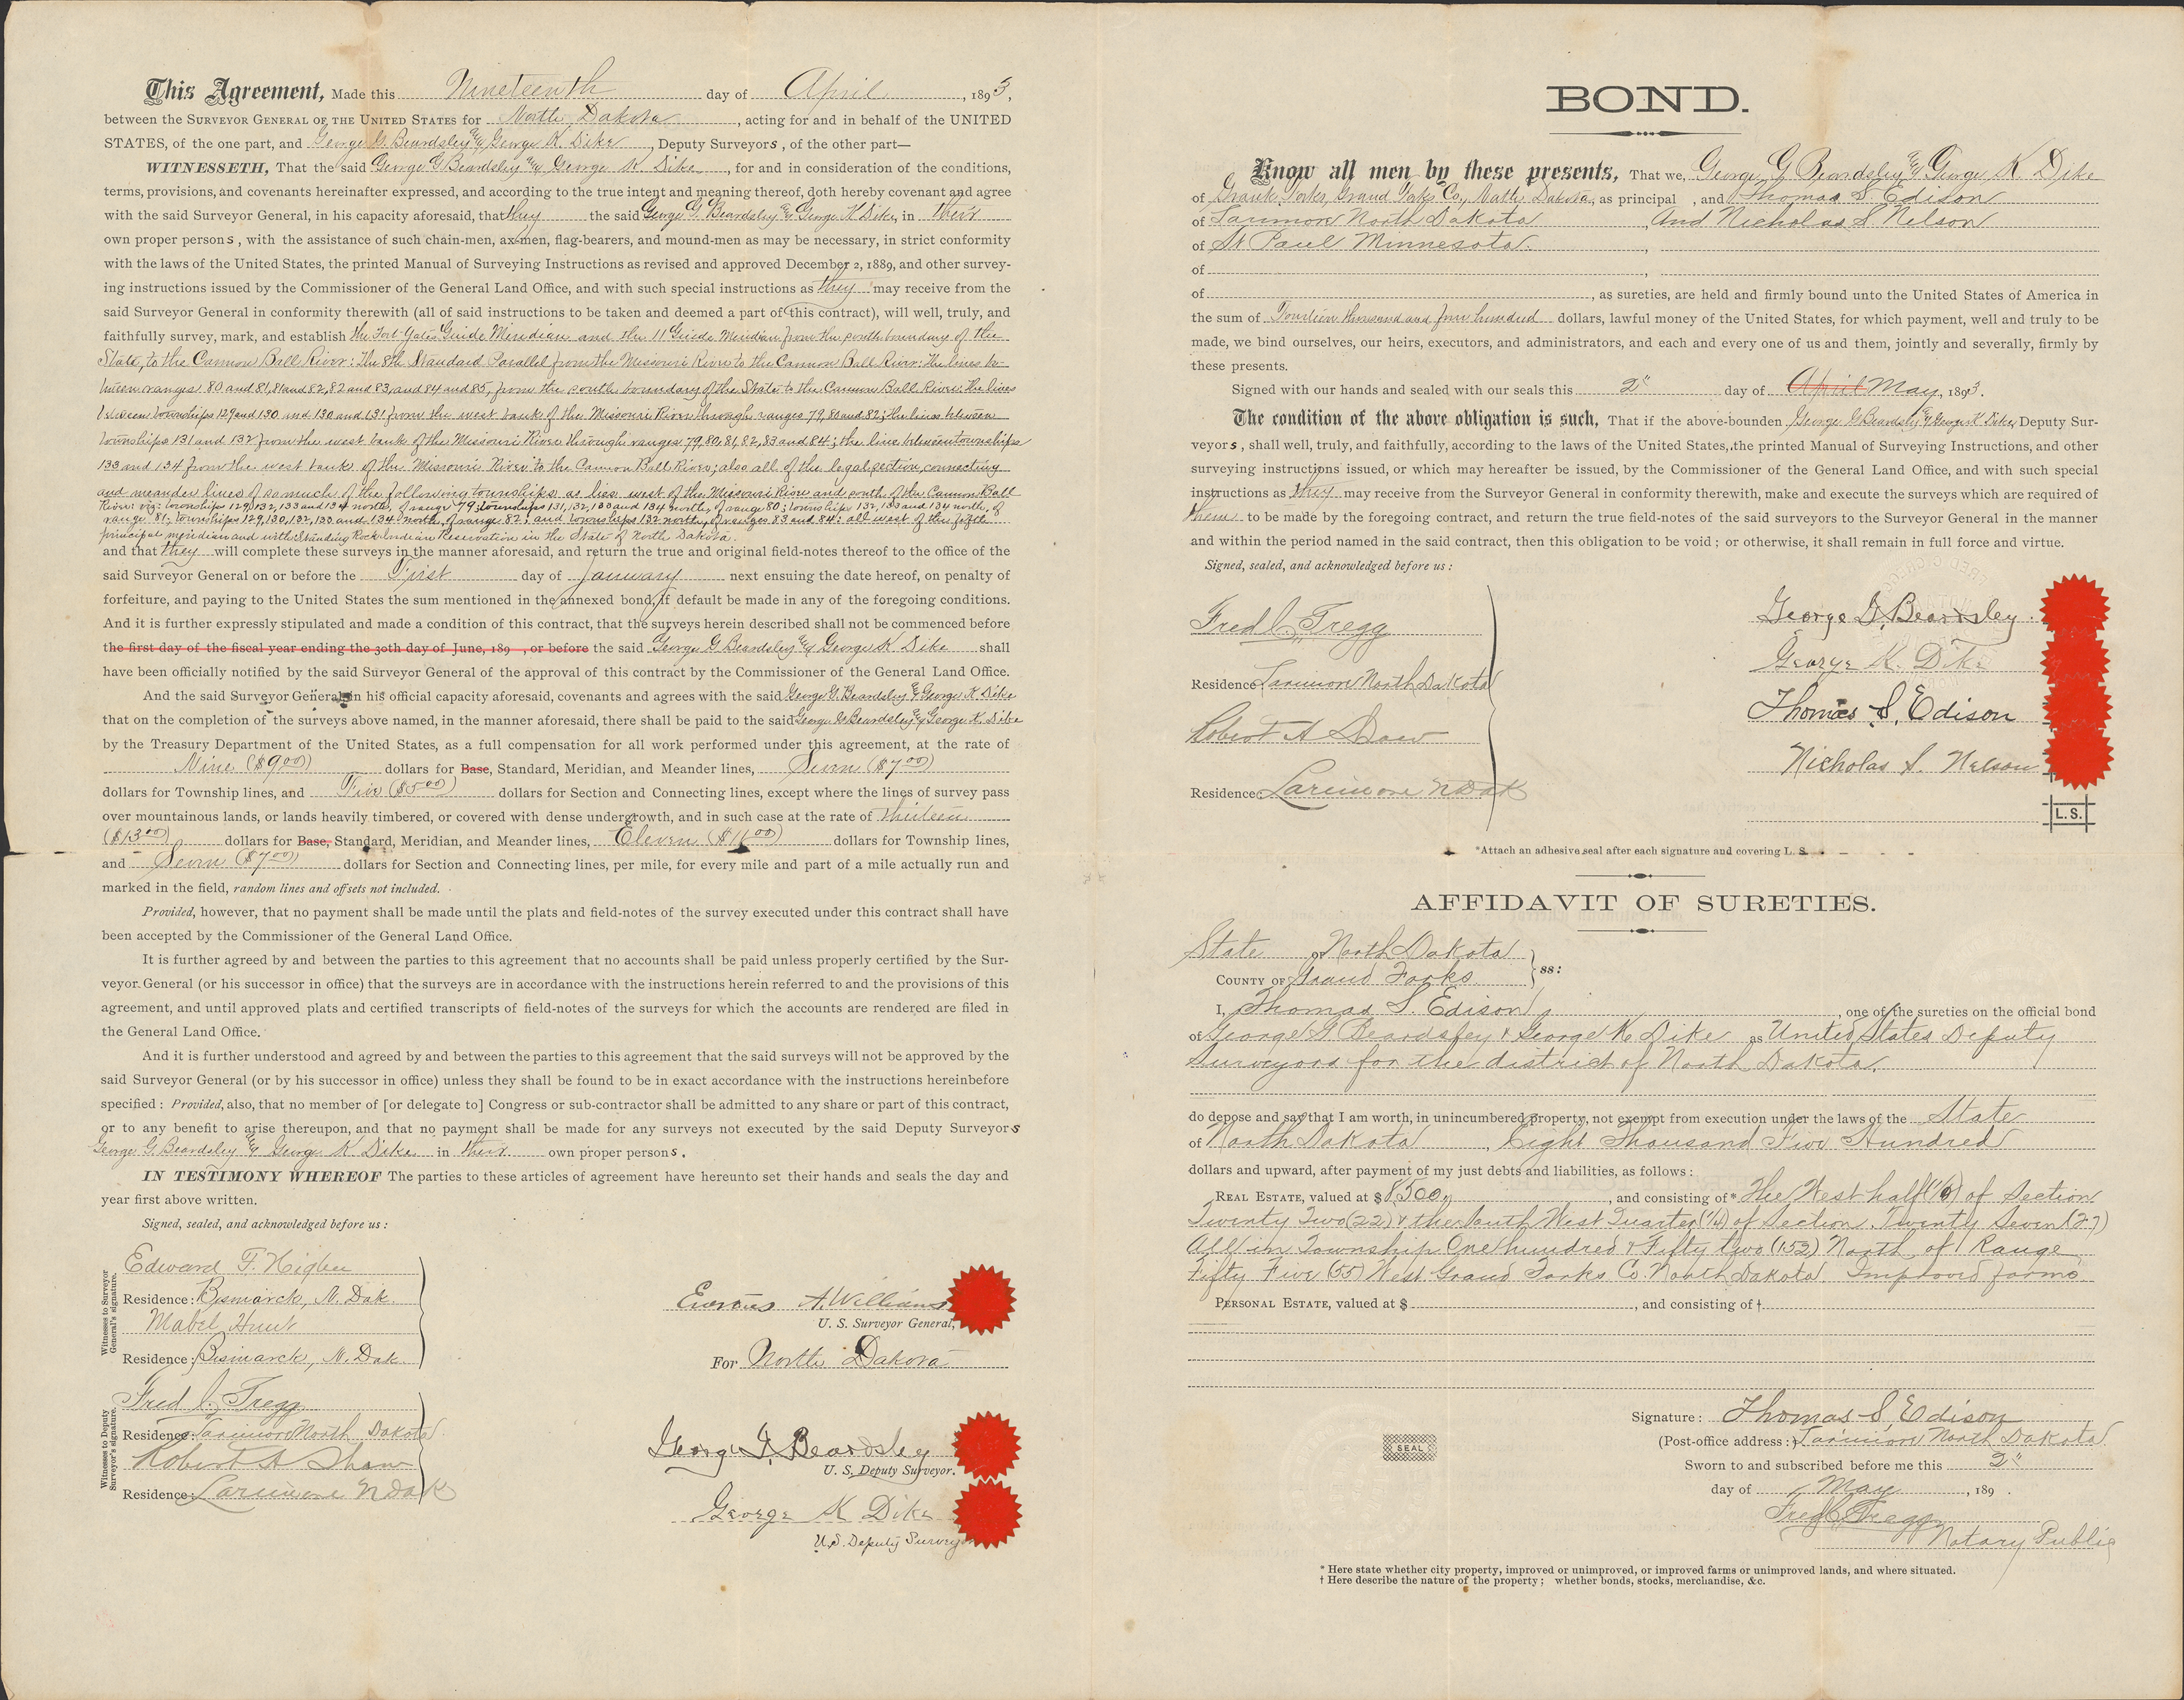 This Agreement, Made this Nineteenth day of April, 1893,
between the SURVEYOR GENERAL OF THE UNITED STATES for North Dakota, acting for and in behalf of the UNITED
STATES, of the one part, and George G. Beardsley & George K. Dike, Deputy Surveyors, of the other part—
WITNESSETH, That the said George G Beardsley & George K Dike, for and in consideration of the conditions,
terms, provisions, and covenants hereinafter expressed, and according to the true intent and meaning thereof, doth hereby covenant and agree
with the said Surveyor General, in his capacity aforesaid, that they the said George G. Beardsley & George K Dike, in their
own proper persons, with the assistance of such chain-men, axemen, flag-bearers, and mound-men as may be necessary, in strict conformity
with the laws of the United States, the printed Manual of Surveying Instructions as revised and approved December 2, 1889, and other survey-
ing instructions issued by the Commissioner of the General Land Office, and with such special instructions as they may receive from the
said Surveyor General in conformity therewith (all of said instructions to be taken and deemed a part of this contract), will well, truly, and
faithfully survey, mark, and establish the Fort Yates Guide Meridian and the 11 Guide Meridian from the south boundary of the
State, to the Cannon Ball River: The 8th Standard Parallel from the Missouri River to the Cannon Ball River: the lines be-
tween ranges 80 and 81, 81 and 82, 82 and 83, and 84 and 85, from the south boundary of the State to the Cannon Ball River: the lines
between townships 129 and 130 and 130 and 131 from the west bank of the Missouri River through ranges 79, 80 and 82; the lines between
townships 131 and 132 from the west bank of the Missouri River through ranges 79, 80, 81, 82, 83 and 84; the line between townships
133 and 134 from the west bank of the Missouri River to the Cannon Ball River; also all of the legal section, connecting
and meander lines of so much of the following townships as lies west of the Missouri River and south of the Cannon Ball
River: viz: townships 129, 132, 133 and 134 north, of range 79; townships 131, 132, 133 and 134 north, of range 80; townships 132, 133 and 134 north, of
range 81; townships 129, 130, 132, 133 and 134 north, of range 82; and townships 132 north, of ranges 83 and 84: all west of the fifth
principal meridian and with Standing Rock Indian Reservation in the State of North Dakota.
and that they will complete these surveys in the manner aforesaid, and return the true and original field-notes thereof to the office of the
said Surveyor General on or before the First day of January next ensuing the date hereof, on penalty of
forfeiture, and paying to the United States the sum mentioned in the annexed bond, if default be made in any of the foregoing conditions.
And it is further expressly stipulated and made a condition of this contract, that the surveys herein described shall not be commenced before
the first day of the fiscal year ending the 30th day of June, 189 , or before the said George G Beardsley & George K Dike shall
have been officially notified by the said Surveyor General of the approval of this contract by the Commissioner of the General Land Office.
And the said Surveyor General, in his official capacity aforesaid, covenants and agrees with the said George G. Beardsley & George K Dike
that on the completion of the surveys above named, in the manner aforesaid, there shall be paid to the said George G Beardsley & George K. Dike
by the Treasury Department of the United States, as a full compensation for all work performed under this agreement, at the rate of
Nine ($9.00) dollars for Base, Standard, Meridian, and Meander lines, Seven ($7.00)
dollars for Township lines, and Five ($5.00) dollars for Section and Connecting lines, except where the lines of survey pass
over mountainous lands, or lands heavily timbered, or covered with dense undergrowth, and in such case at the rate of Thirteen
($13.00) dollars for Base, Standard, Meridian, and Meander lines, Eleven ($11.00) dollars for Township lines,
and Seven ($7.00) dollars for Section and Connecting lines, per mile, for every mile and part of a mile actually run and
marked in the field, random lines and offsets not included.
Provided, however, that no payment shall be made until the plats and field-notes of the survey executed under this contract shall have
been accepted by the Commissioner of the General Land Office.
It is further agreed by and between the parties to this agreement that no accounts shall be paid unless properly certified by the Sur-
veyor General (or his successor in office) that the surveys are in accordance with the instructions herein referred to and the provisions of this
agreement, and until approved plats and certified transcripts of field-notes of the surveys for which the accounts are rendered are filed in
the General Land Office.
And it is further understood and agreed by and between the parties to this agreement that the said surveys will not be approved by the
said Surveyor General (or by his successor in office) unless they shall be found to be in exact accordance with the instructions hereinbefore
specified: Provided, also, that no member of [or delegate to] Congress or sub-contractor shall be admitted to any share or part of this contract,
or to any benefit to arise thereupon, and that no payment shall be made for any surveys not executed by the said Deputy Surveyors
George G. Beardsley & George K Dike in their own proper persons.
IN TESTIMONY WHEREOF The parties to these articles of agreement have hereunto set their hands and seals the day and
year first above written.
Signed, sealed, and acknowledged before us:
Witnesses to Surveyor General's signature.
Edward F. Higbee
Residence: Bismarck, N. Dak.
Mabel Hunt
Residence: Bismarck, N. Dak.
Erastus A. Williams
U. S. Surveyor General,
For North Dakota
Witnesses to Deputy Surveyor's signature.
Fred C. Tregg
Residence: Larimore North Dakota
Robert A Shaw
Residence: Larimore N Dak
George G. Beardsley
U. S. Deputy Surveyor.
George K Dike
U.S. Deputy Surveyor
BOND.
Know all men by these presents, That we, George G Beardsley & George K. Dike
of Grand Forks, Grand Forks Co., North Dakota, as principal , and Thomas S. Edison
of Larimore North Dakota, And Nicholas S Nelson
of St Paul Minnesota.,
of ,
of , as sureties, are held and firmly bound unto the United States of America in
the sum of Fourteen thousand and four hundred dollars, lawful money of the United States, for which payment, well and truly to be
made, we bind ourselves, our heirs, executors, and administrators, and each and every one of us and them, jointly and severally, firmly by
these presents.
Signed with our hands and sealed with our seals this 2" day of April May, 1893.
The condition of the above obligation is such, That if the above-bounden George G Beardsley & George K Dike, Deputy Sur-
veyors, shall well, truly, and faithfully, according to the laws of the United States, the printed Manual of Surveying Instructions, and other
surveying instructions issued, or which may hereafter be issued, by the Commissioner of the General Land Office, and with such special
instructions as they may receive from the Surveyor General in conformity therewith, make and execute the surveys which are required of
them to be made by the foregoing contract, and return the true field-notes of the said surveyors to the Surveyor General in the manner
and within the period named in the said contract, then this obligation to be void; or otherwise, it shall remain in full force and virtue.
Signed, sealed, and acknowledged before us:
Fred C. Tregg
Residence: Larimore North Dakota
Robert A Shaw
Residence: Larimore N Dak
George G. Beardsley.
George K. Dike
Thomas S. Edison
Nicholas S. Nelson
L.S.
*Attach an adhesive seal after each signature and covering L. S.
AFFIDAVIT OF SURETIES.
State of North Dakota
COUNTY OF Grand Forks } ss:
I, Thomas S. Edison, one of the sureties on the official bond
of George G Beardsley & George K Dike as United States Deputy
Surveyors for the district of North Dakota.
do depose and say that I am worth, in unincumbered property, not exempt from execution under the laws of the State
of North Dakota, Eight Thousand Five Hundred
dollars and upward, after payment of my just debts and liabilities, as follows:
REAL ESTATE, valued at $8500, and consisting of* The West half of Section
Twenty Two (22) & the South West Quarter (1/4) of Section Twenty Seven (27)
All in Township One hundred & Fifty two (152) North, of Range
Fifty Five (55) West Grand Forks Co North Dakota. Improved farms
PERSONAL ESTATE, valued at $ , and consisting of †
SEAL
Signature: Thomas S. Edison
(Post-office address:) Larimore North Dakota
Sworn to and subscribed before me this 2"
day of May, 189 .
Fred C. Tregg
Notary Public
* Here state whether city property, improved or unimproved, or improved farms or unimproved lands, and where situated.
† Here describe the nature of the property; whether bonds, stocks, merchandise, &c.